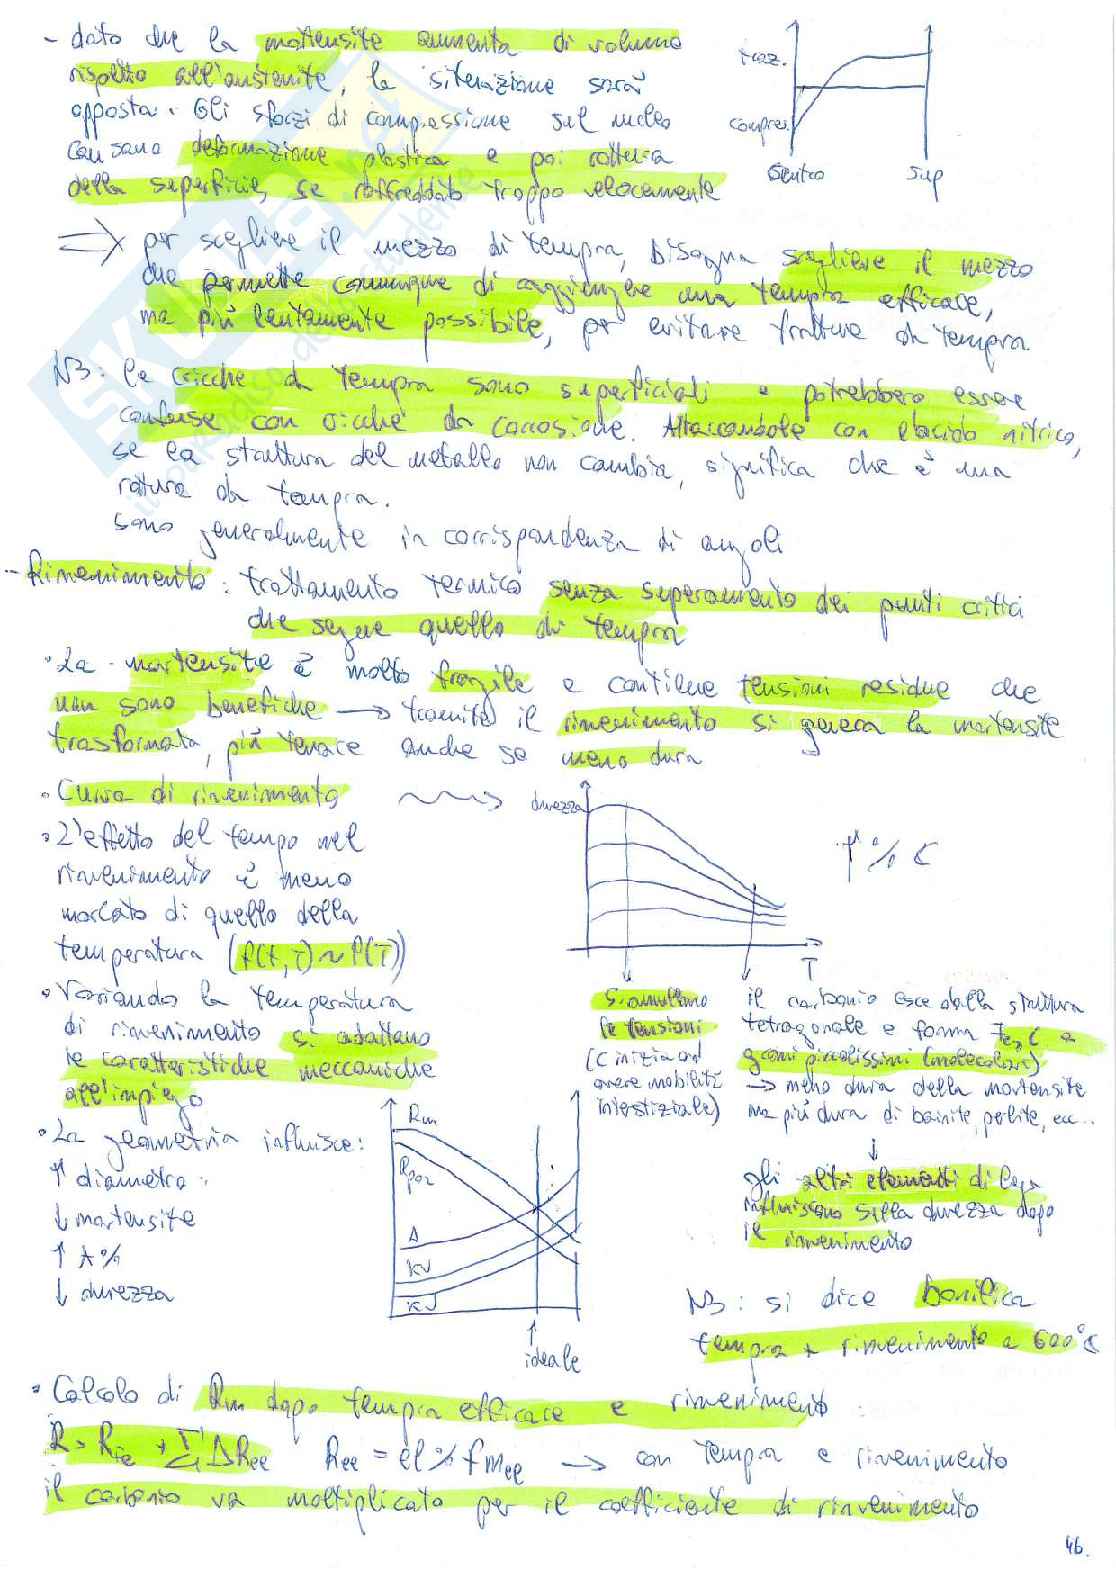 - dato che la martensite aumenta di volume
rispetto all'austenite, la situazione sarà
opposta. Gli sforzi di compressione sul nucleo
causano deformazione plastica e poi rottura
della superficie, se raffreddato troppo velocemente
traz.
compres.
centro
sup
⇒ per scegliere il mezzo di tempra, bisogna scegliere il mezzo
che permette comunque di raggiungere una tempra efficace,
ma più lentamente possibile, per evitare fratture da tempra.
NB: le cricche da tempra sono superficiali e potrebbero essere
confuse con cricche da corrosione. Attaccandole con l'acido nitrico,
se la struttura del metallo non cambia, significa che è una
rottura da tempra.
sono generalmente in corrispondenza di angoli
- Rinvenimento: trattamento termico senza superamento dei punti critici
che segue quello di tempra
• La martensite è molto fragile e contiene tensioni residue che
non sono benefiche → tramite il rinvenimento si genera la martensite
trasformata, più tenace anche se meno dura
• Curva di rinvenimento
durezza
T
↑ % C
• L'effetto del tempo nel
rinvenimento è meno
marcato di quello della
temperatura (f(t,T) ~ f(T))
• Variando la temperatura
di rinvenimento si adattano
le caratteristiche meccaniche
all'impiego
si annullano
le tensioni
(C inizia ad
avere mobilità
interstiziale)
il carbonio esce dalla struttura
tetragonale e forma Fe3C a
grani piccolissimi (molecolari)
→ meno dura della martensite
ma più dura di bainite, perlite, ecc..
↓
gli altri elementi di lega
influiscono sulla durezza dopo
il rinvenimento
• La geometria influisce:
↑ diametro
↓ martensite
↑ A%
↓ durezza
Rm
Rp02
A
KV
KU
↑
ideale
NB: si dice bonifica
tempra + rinvenimento a 600°C
• Calcolo di Rm dopo tempra efficace e rinvenimento:
R = RFe + Σ ΔRee Ree = el% fMee → con tempra e rinvenimento
il carbonio va moltiplicato per il coefficiente di rinvenimento
46.